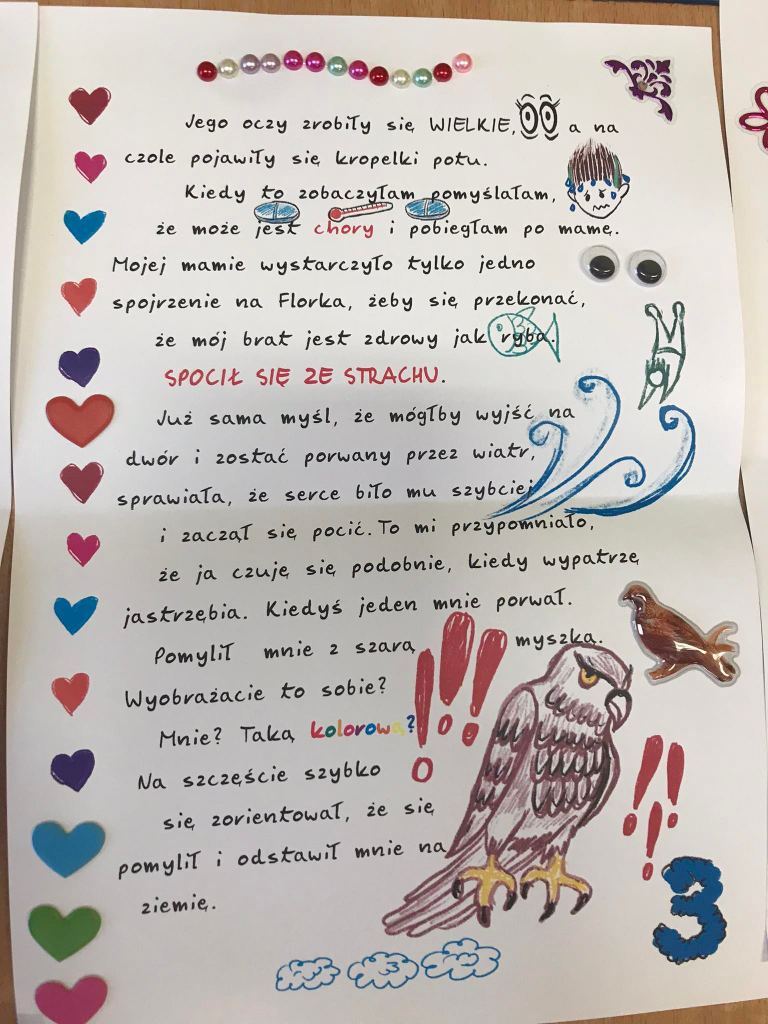 Jego oczy zrobiły się WIELKIE, a na
czole pojawiły się kropelki potu.
Kiedy to zobaczyłam pomyślałam,
że może jest chory i pobiegłam po mamę.
Mojej mamie wystarczyło tylko jedno
spojrzenie na Florka, żeby się przekonać,
że mój brat jest zdrowy jak ryba.
SPOCIŁ SIĘ ZE STRACHU.
Już sama myśl, że mógłby wyjść na
dwór i zostać porwany przez wiatr,
sprawiała, że serce biło mu szybciej
i zaczął się pocić. To mi przypomniało,
że ja czuję się podobnie, kiedy wypatrzę
jastrzębia. Kiedyś jeden mnie porwał.
Pomylił mnie z szarą myszką.
Wyobrażacie to sobie?
Mnie? Taką kolorową?
Na szczęście szybko
się zorientował, że się
pomylił i odstawił mnie na
ziemię.
3